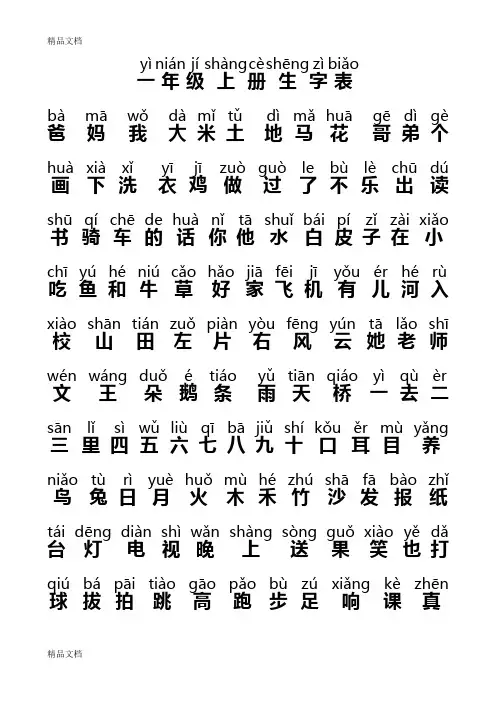 精品文档
yì nián jí shàng cè shēng zì biǎo
一 年 级 上 册 生 字 表
bà mā wǒ dà mǐ tǔ dì mǎ huā gē dì gè
爸 妈 我 大 米 土 地 马 花 哥 弟 个
huà xià xǐ yī jī zuò guò le bù lè chū dú
画 下 洗 衣 鸡 做 过 了 不 乐 出 读
shū qí chē de huà nǐ tā shuǐ bái pí zǐ zài xiǎo
书 骑 车 的 话 你 他 水 白 皮 子 在 小
chī yú hé niú cǎo hǎo jiā fēi jī yǒu ér hé rù
吃 鱼 和 牛 草 好 家 飞 机 有 儿 河 入
xiào shān tián zuǒ piàn yòu fēng yún tā lǎo shī
校 山 田 左 片 右 风 云 她 老 师
wén wáng duǒ é tiáo yǔ tiān qiáo yì qù èr
文 王 朵 鹅 条 雨 天 桥 一 去 二
sān lǐ sì wǔ liù qī bā jiǔ shí kǒu ěr mù yǎng
三 里 四 五 六 七 八 九 十 口 耳 目 养
niǎo tù rì yuè huǒ mù hé zhú shā fā bào zhǐ
鸟 兔 日 月 火 木 禾 竹 沙 发 报 纸
tái dēng diàn shì wǎn shàng sòng guǒ xiào yě dǎ
台 灯 电 视 晚 上 送 果 笑 也 打
qiú bá pāi tiào gāo pǎo bù zú xiǎng kè zhēn
球 拔 拍 跳 高 跑 步 足 响 课 真
精品文档